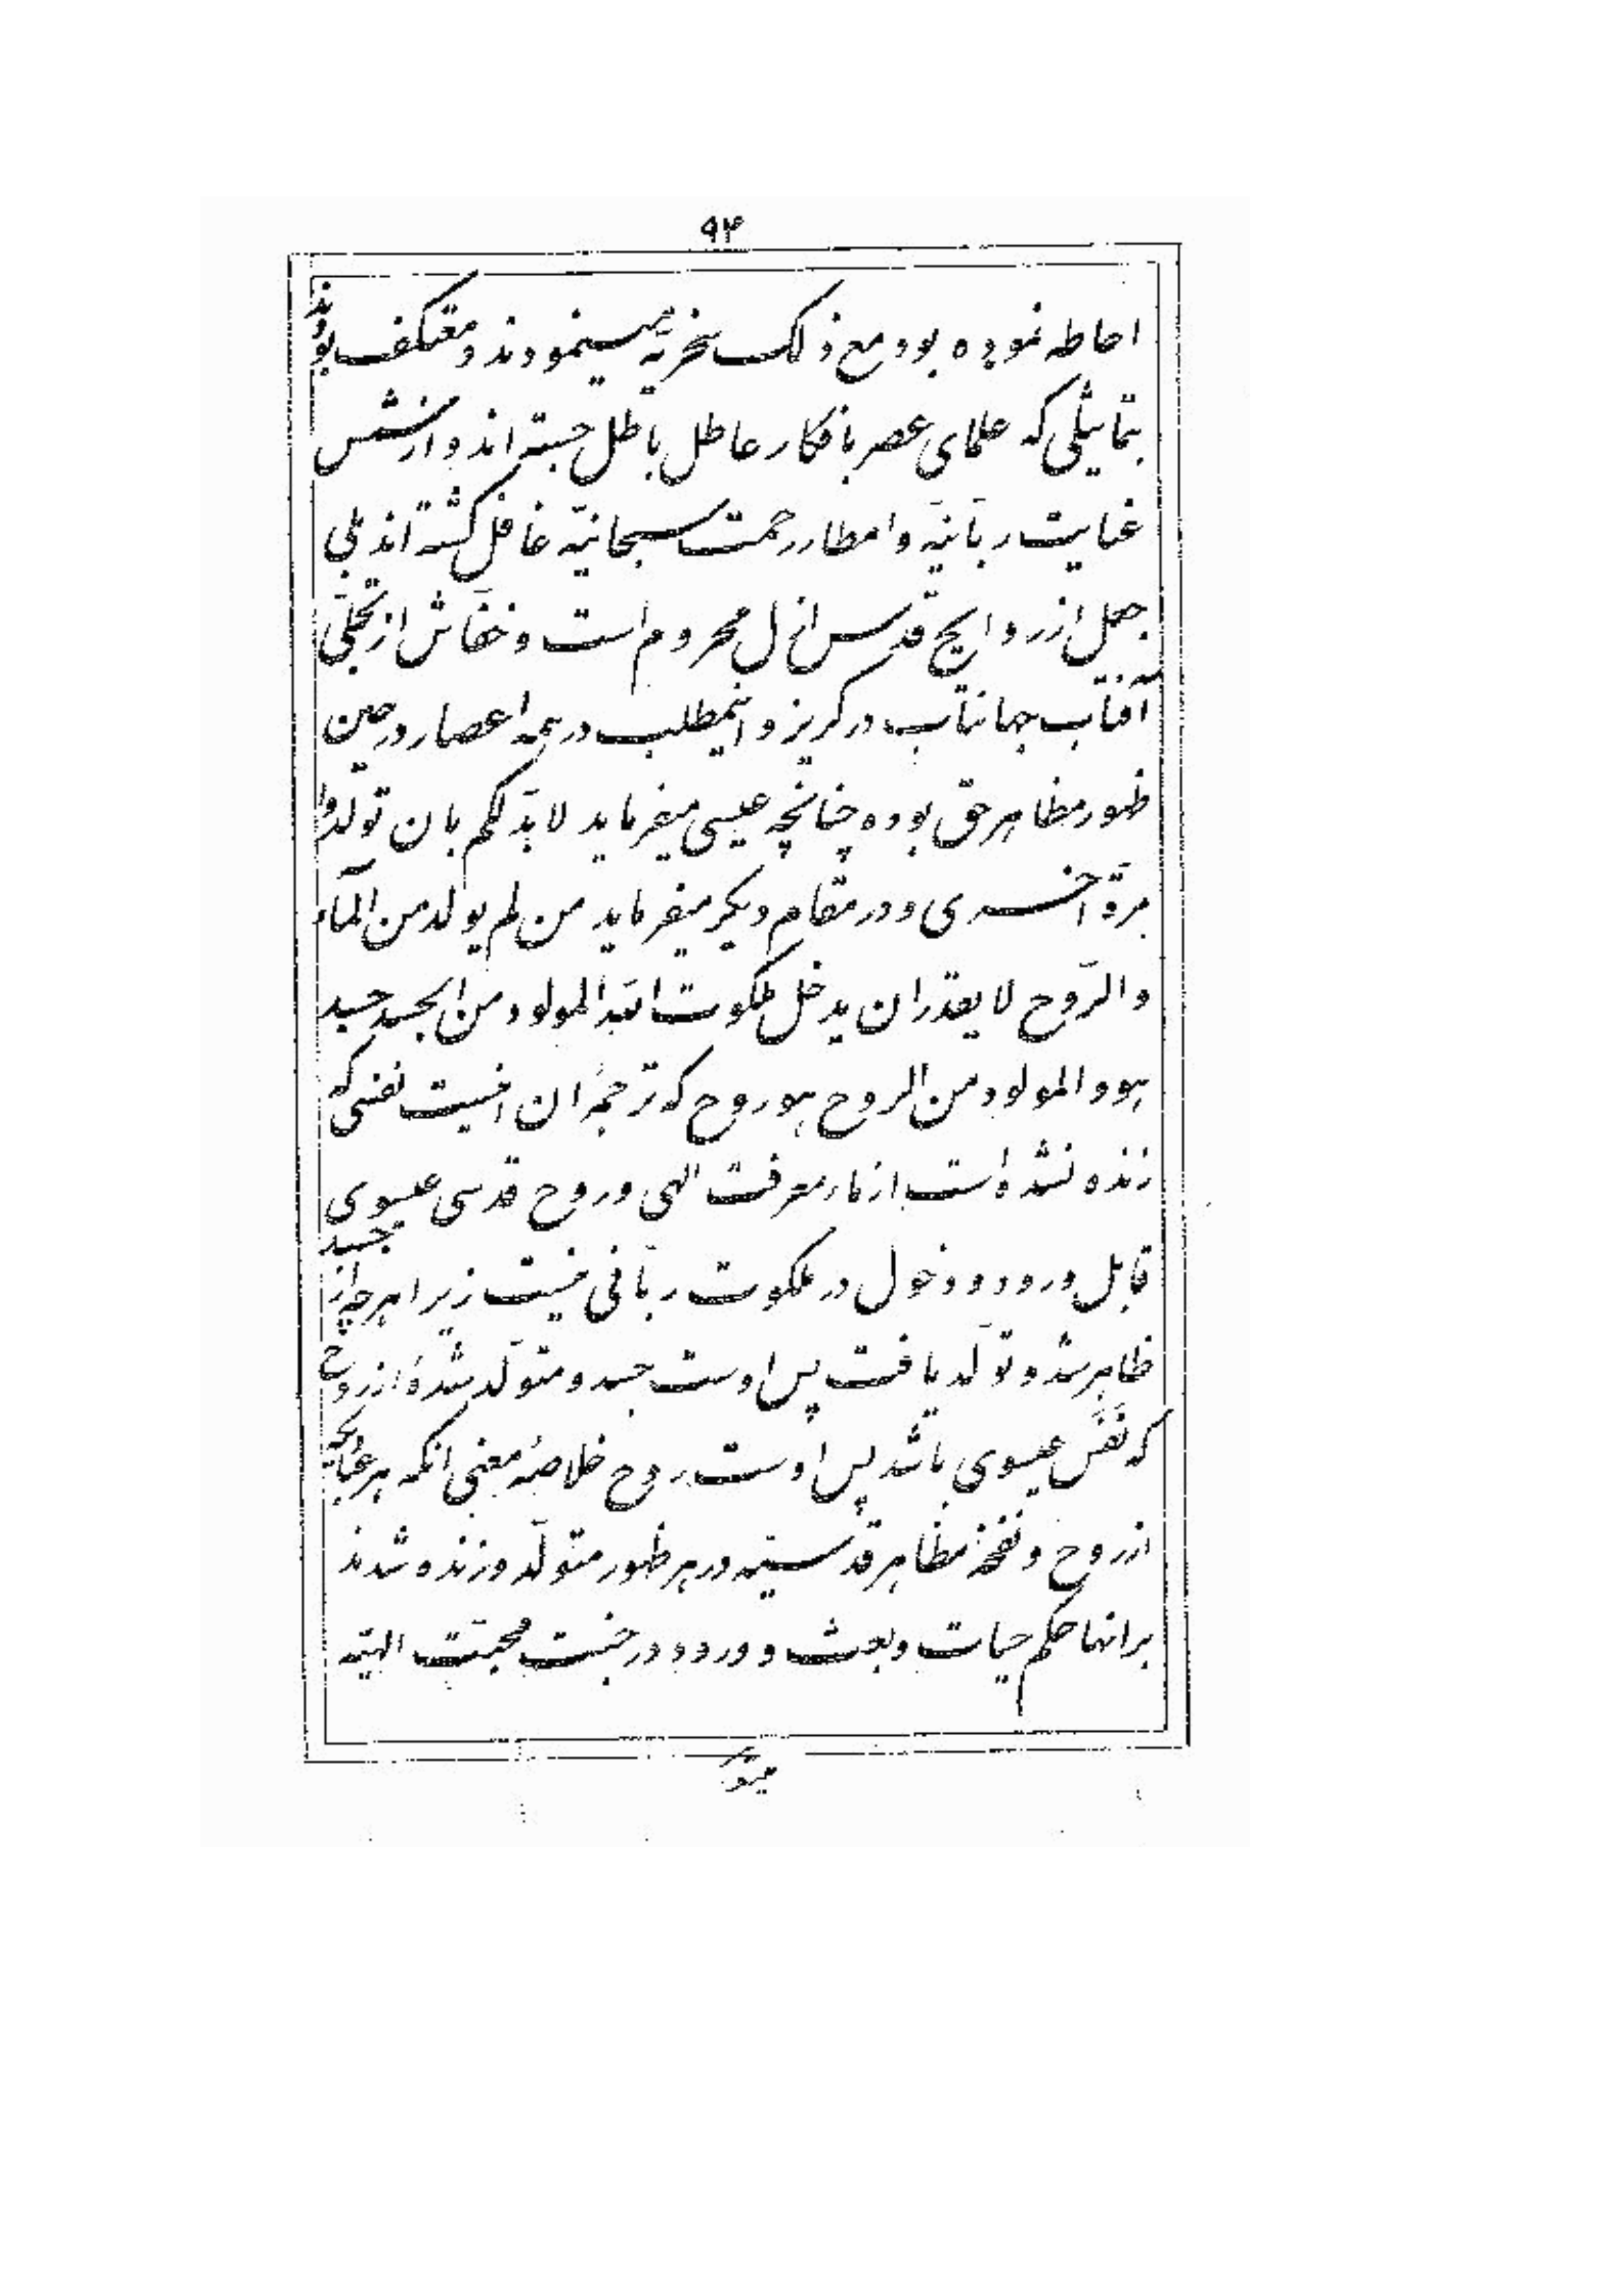 ۹۴
احاطه نموده بود مع ذلک سخریّه مینمودند و معتکف بودند
بتماثیلی که علمای عصر بافکار عاطل باطل جسته اند و از شمس
عنایت ربّانیّه و امطار رحمت سبحانیّه غافل گشته اند بلی
جعل از روایح قدس ازل محروم است و خفّاش از تجلّی
آفتاب جهانتاب در گریز و اینمطلب در همه اعصار در حین
ظهور مظاهر حق بوده چنانچه عیسی میفرماید لا بدّ لکم بان تولدوا
مرّة اخری و در مقام دیگر میفرماید من لم یولد من المآء
و الرّوح لا یقدر ان یدخل ملکوت اللّه المولود من الجسد جسد
هو و المولود من الروح هو روح که ترجمهٔ ان اینست نفسی که
زنده نشده است از ماء معرفت الهی و روح قدسی عیسوی
قابل ورود و دخول در ملکوت ربّانی نیست زیرا هرچه از جسد
ظاهر شد و تولّد یافت پس اوست جسد و متولّد شدهٔ از روح
که نَفَس عیسوی باشد پس اوست روح خلاصهٔ معنی انکه هر عبادیکه
از روح و نفخهٔ مظاهر قدسیّه در هر ظهور متولّد و زنده شدند
بر انها حکم حیات و بعث و ورود در جنّت محبّت الهیّه
میشود